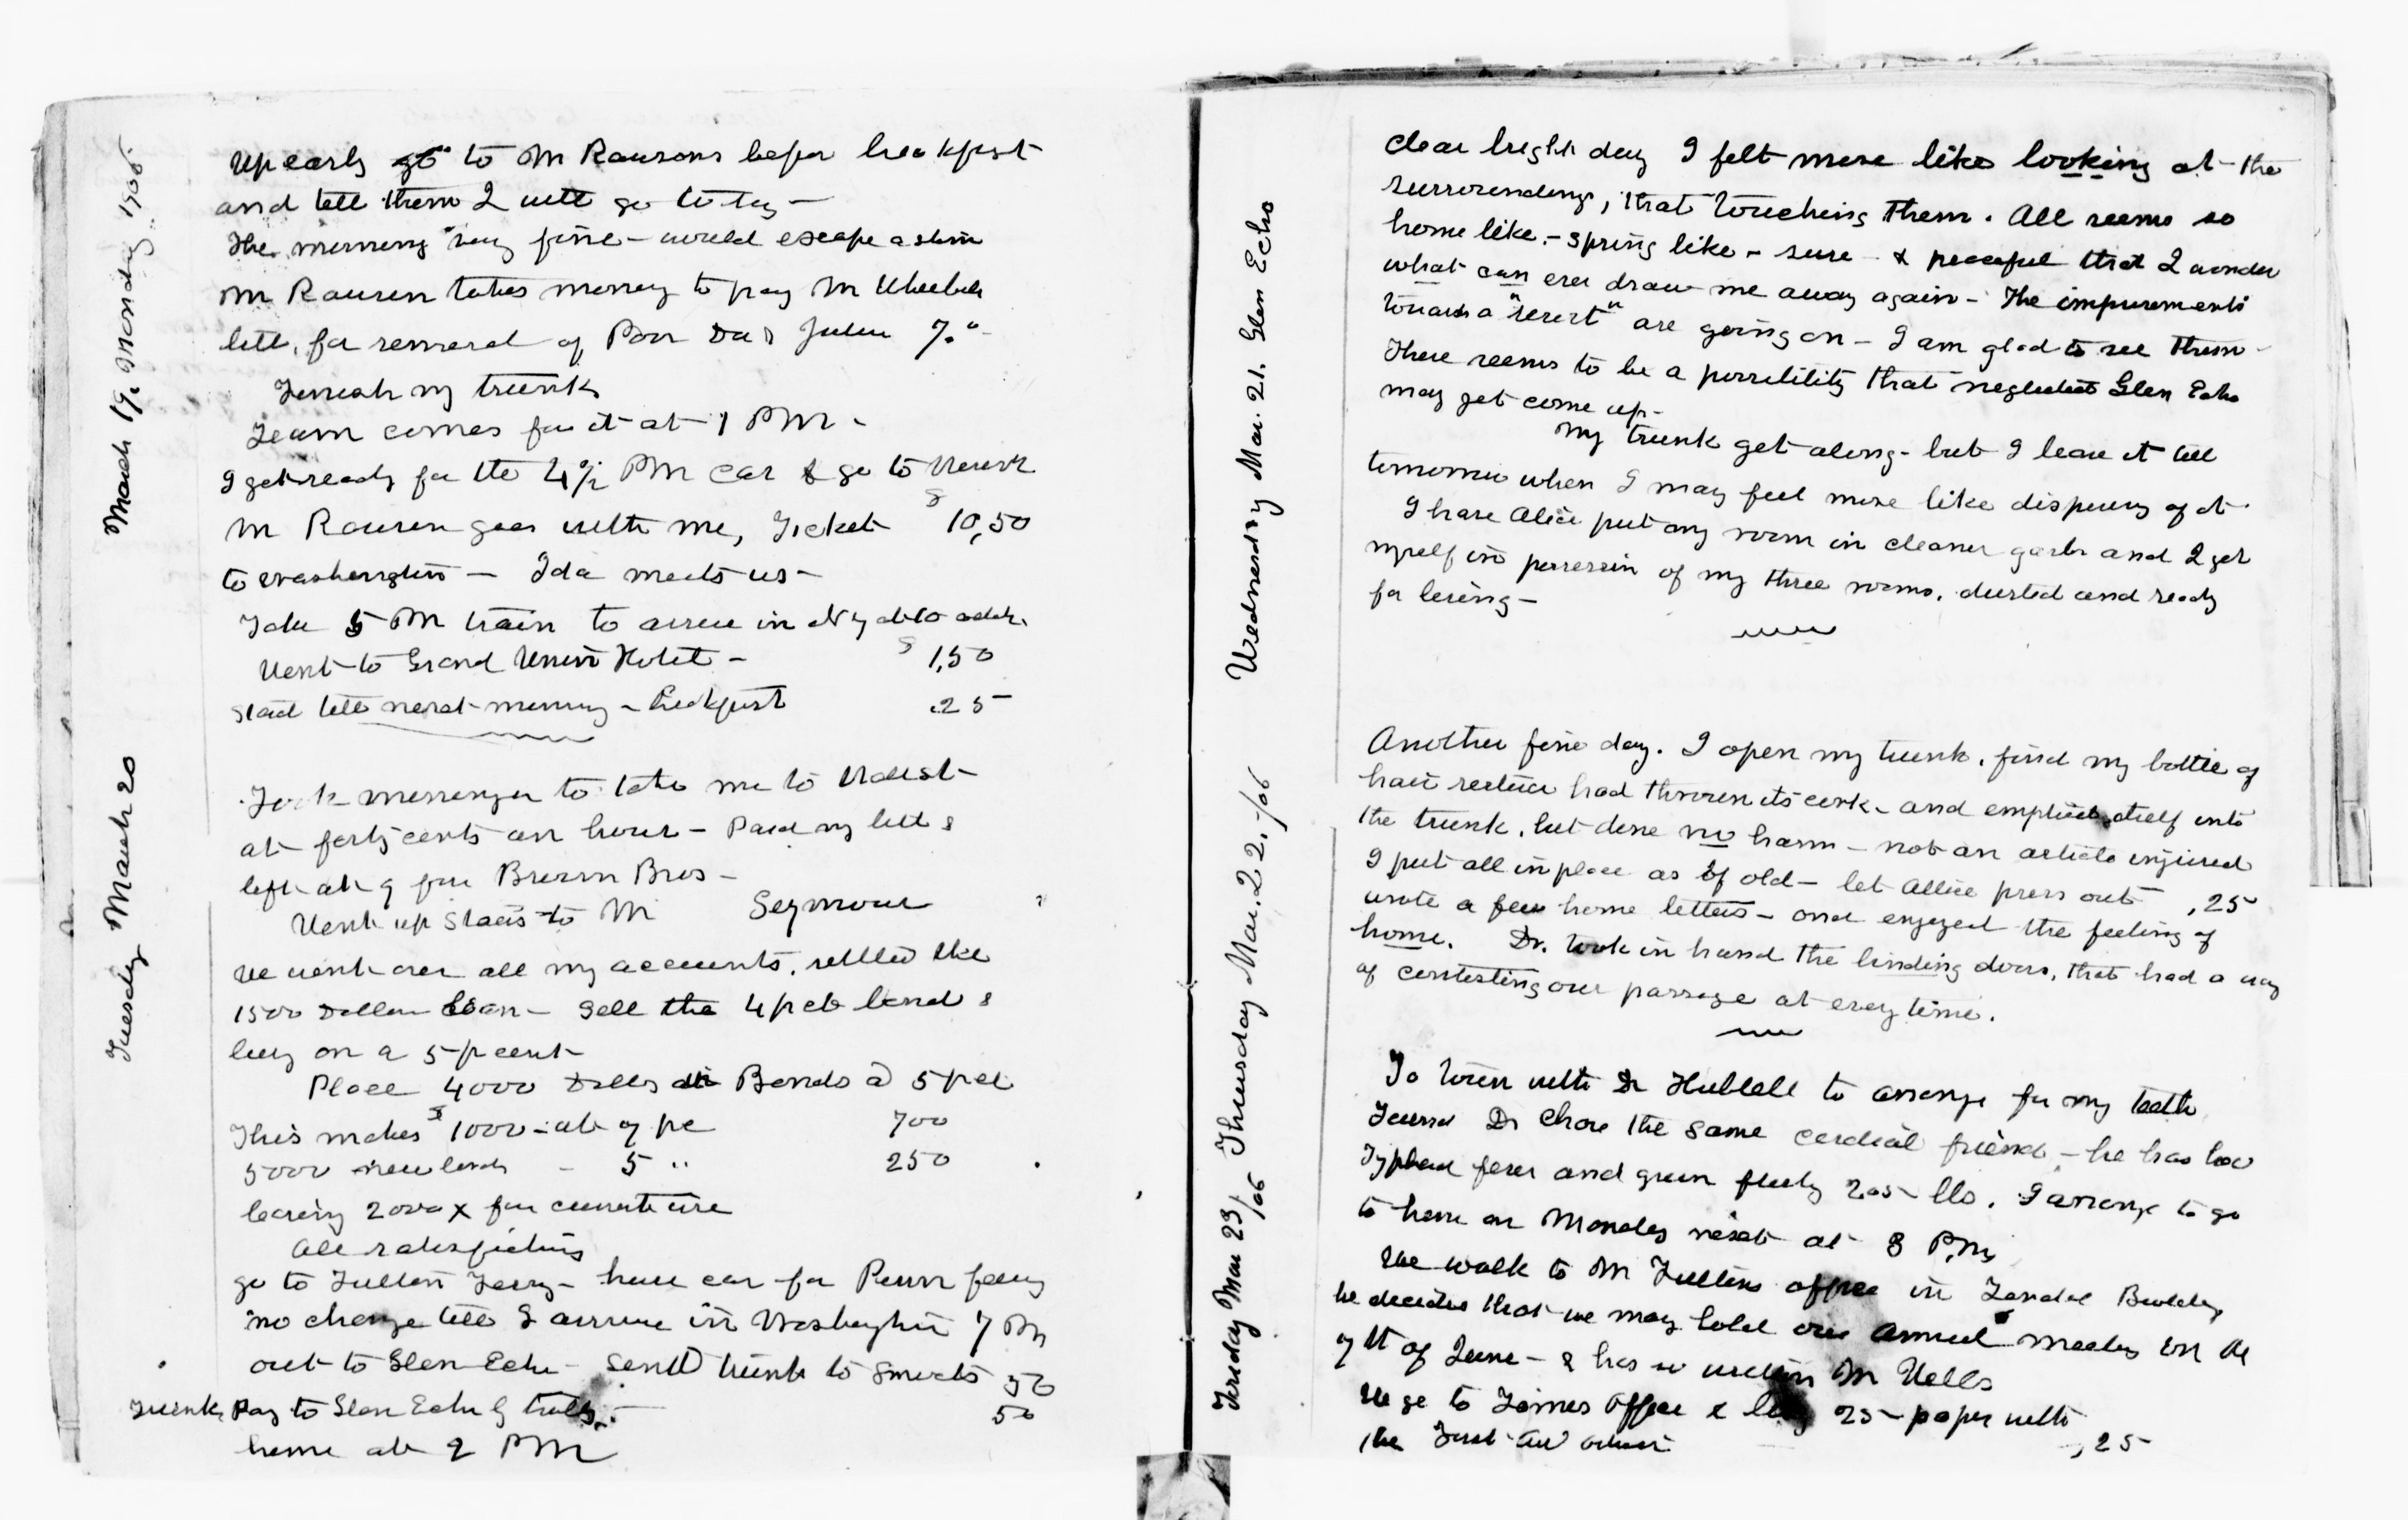 March 19. Monday 1906.
Up early go to to Mr Rawsons before breakfast
and tell them I will go to day —
The morning very fine — would escape a storm
Mr Rawson takes money to pay Mr
bill, for removal of Poor Dad Julian 7.00
Finish my trunk
Team comes for it at 1 PM —
I get ready for the 4½ PM car & go to
Mr Rawson goes with me, Ticket $ 10,50
to Washington — Ida meets us —
Take 5 PM train to arrive in N y at 10
Went to Grand Union Hotel — $ 1,50
Staid till next morning — Breakfast .25
Tuesday March 20
Took messenger to take me to Wall st
at forty cents an hour — Paid my bill &
left at 9 for Brown Bros —
Went up stairs to Mr Seymour
We went over all my accounts, settled the
1500 Dollar loan — Sell the 4 p ct bond &
buy on a 5 p cent
Place 4000 Dolls in Bonds @ 5 p ct
This makes $ 1000 — at 7 pc 700
5000 new bonds — 5 " 250
leaving 2000 x for
All satisfactory
go to Fulton Ferry — have car for Penn ferry
no change till I arrive in Washington 7 PM
out to Glen Echo — send trunk to 50
Trunk, Pay to Glen Echo by trolly — 50
home at 9 PM
Wednesday Mar. 21. Glen Echo
Clear bright day I felt more like looking at the
surroundings, that touching them. All seems so
home like, — spring like — sure & peaceful that I wonder
what can ever draw me away again — The impurements
towards a "resort" are going on — I am glad to see them —
There seems to be a possibility that neglected Glen Echo
may yet come up —
My trunk get along — but I leave it till
tomorrow when I may feel more like disposing of it.
I have Alice put my room in cleaner garb and I get
myself in possession of my three rooms, dusted and ready
for living —
Thursday Mar. 22. /06
Another fine day. I open my trunk, find my bottle of
hair restorer had thrown its cork — and emptied itself into
the trunk, but done no harm — not an article injured
I put all in place as of old — let Allice press out ,25
wrote a few home letters — and enjoyed the feeling of
home. Dr. took in hand the binding doors, that had a way
of contesting our passage at every time.
Friday Mar 23, /06
To town with Dr Hubbell to arrange for my teeth
Found Dr Chase the same cordial friend — he has had
Typhoid fever and grown fleshy 205 lbs. I arrange to go
to have on Monday next at 3 P.M,
We walk to Mr Fullers office in Building
he decides that we may hold our annual meeting on the
7th of June — & has so written Mr Wells
We go to Times Office & buy 25 — paper with
the First Aid advert ,25